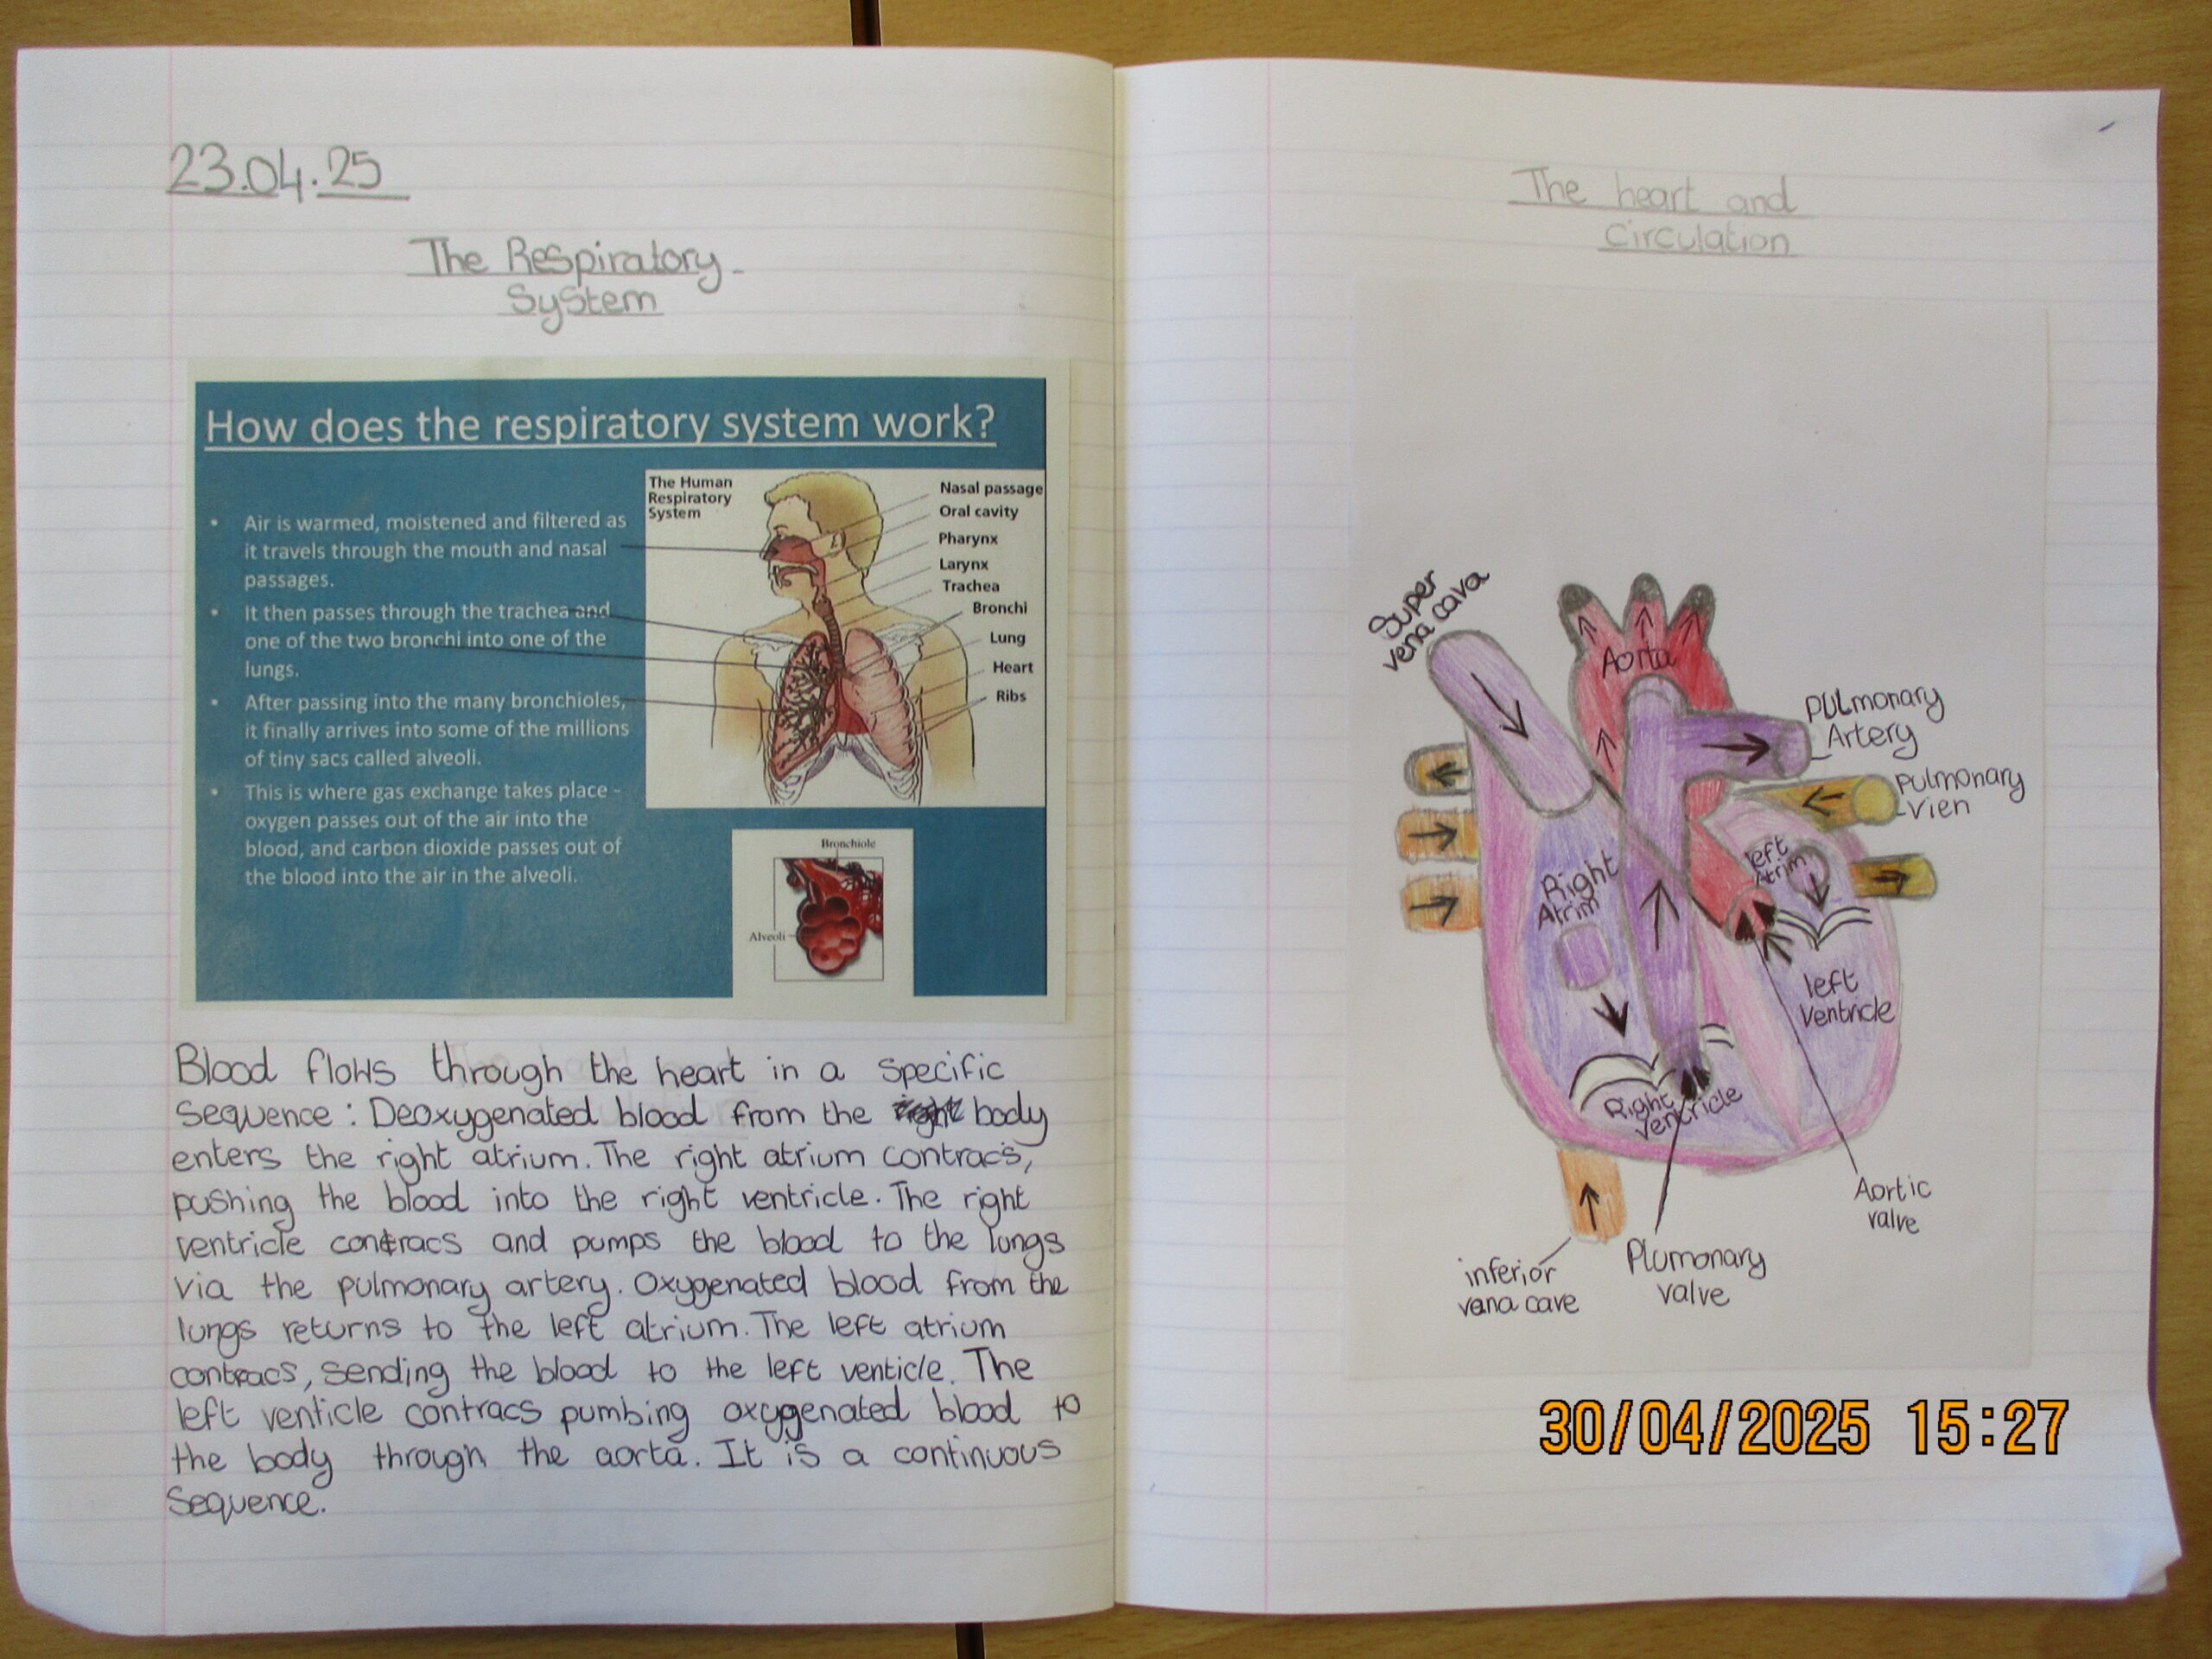 23.04.25
The Respiratory
System
How does the respiratory system work?
• Air is warmed, moistened and filtered as
it travels through the mouth and nasal
passages.
• It then passes through the trachea and
one of the two bronchi into one of the
lungs.
• After passing into the many bronchioles,
it finally arrives into some of the millions
of tiny sacs called alveoli.
• This is where gas exchange takes place -
oxygen passes out of the air into the
blood, and carbon dioxide passes out of
the blood into the air in the alveoli.
The Human
Respiratory
System
Nasal passage
Oral cavity
Pharynx
Larynx
Trachea
Bronchi
Lung
Heart
Ribs
Bronchiole
Alveoli
Blood flows through the heart in a specific
Sequence: Deoxygenated blood from the right body
enters the right atrium. The right atrium contracs,
pushing the blood into the right ventricle. The right
ventricle contracs and pumps the blood to the lungs
via the pulmonary artery. Oxygenated blood from the
lungs returns to the left atrium. The left atrium
contracs, sending the blood to the left venticle. The
left venticle contracs pumbing oxygenated blood to
the body through the aorta. It is a continuous
Sequence.
The heart and
Circulation
Super
vena cava
Aorta
Pulmonary
Artery
Pulmonary
Vien
left
Atrim
Right
Atrim
left
Ventricle
Right
ventricle
Aortic
valve
Plumonary
valve
inferior
vena cave
30/04/2025 15:27